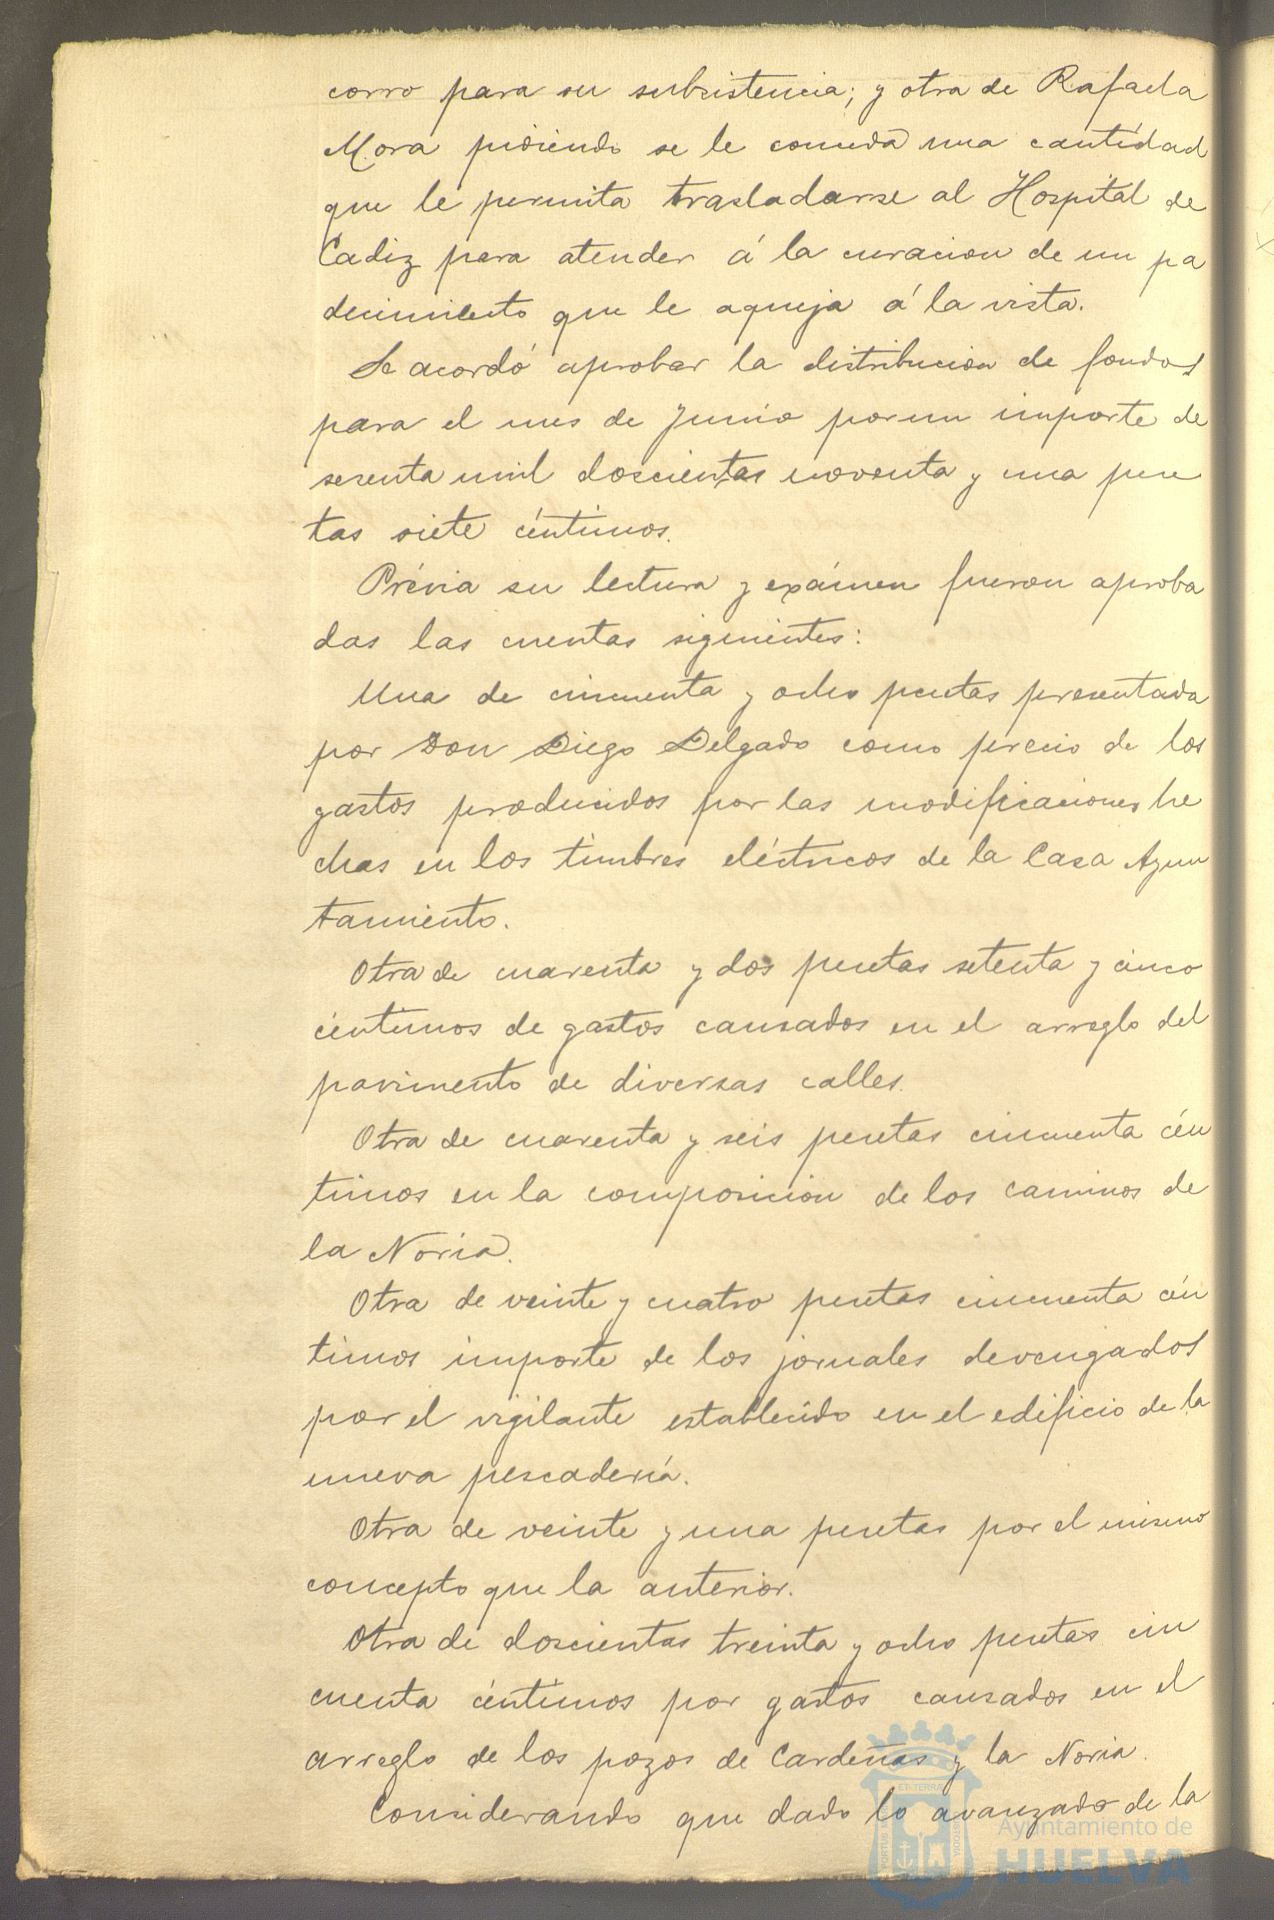 corro para su subsistencia; y otra de Rafaela
Mora pidiendo se le conceda una cantidad
que le permita trasladarse al Hospital de
Cádiz para atender á la curacion de un pa
decimiento que le aqueja á la vista.
Se acordó aprobar la distribucion de fondos
para el mes de Junio por un importe de
sesenta mil doscientas noventa y una pese
tas siete céntimos.
Prévia su lectura y exámen fueron aproba
das las cuentas siguientes:
Una de cincuenta y ocho pesetas presentada
por Don Diego Delgado como precio de los
gastos producidos por las modificaciones he
chas en los timbres eléctricos de la Casa Ayun
tamiento.
Otra de cuarenta y dos pesetas setenta y cinco
céntimos de gastos causados en el arreglo del
pavimento de diversas calles.
Otra de cuarenta y seis pesetas cincuenta cén
timos en la composicion de los caminos de
la Noria.
Otra de veinte y cuatro pesetas cincuenta cén
timos importe de los jornales devengados
por el vigilante establecido en el edificio de la
nueva pescadería.
Otra de veinte y una pesetas por el mismo
concepto que la anterior.
Otra de doscientas treinta y ocho pesetas cin
cuenta céntimos por gastos causados en el
arreglo de los pozos de Cardeñas y la Noria.
Considerando que dado lo avanzado de la
Ayuntamiento de
HUELVA